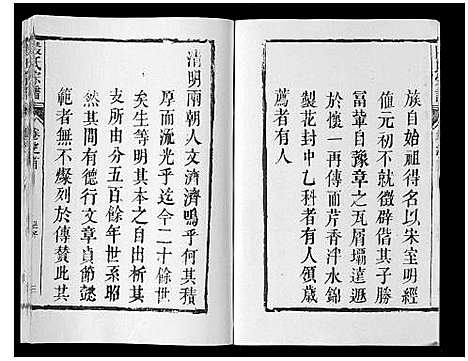 族自始祖得名以宋室明經
值元初不就徵辟偕其子
富華自豫章而
於懷一再傳而芹香泮水錦
製花封中乙科者有人領歲
薦者有人
清明兩朝人文濟濟嗚乎何其積
厚而流光乎迄今二十餘世
矣生等明其本之自出析其
支所由分五百餘年世系昭
然其間有德行文章貞節懿
範者無不燦列於傳贊此其
氏宗譜
卷之首